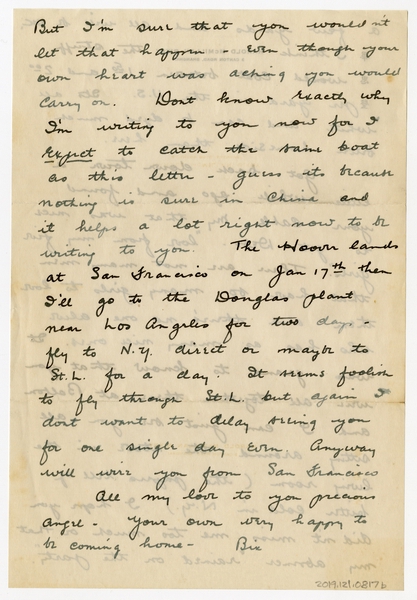 But I'm sure that you wouldn't
let that happen - Even though your
own heart was aching you would
carry on. Dont know exactly why
I'm writing to you now for I
expect to catch the same boat
as this letter - guess its because
nothing is sure in China and
it helps a lot right now to be
writing to you. The Hoover lands
at San Francisco on Jan 17th then
I'll go to the Douglas plant
near Los Angeles for two days -
fly to N.Y. direct or maybe to
St. L. for a day. It seems foolish
to fly through St. L. but again I
dont want to delay seeing you
for one single day even. Anyway
will wire you from San Francisco
All my love to you precious
Angel - Your own very happy to
be coming home - Bix
2019.121.0317b